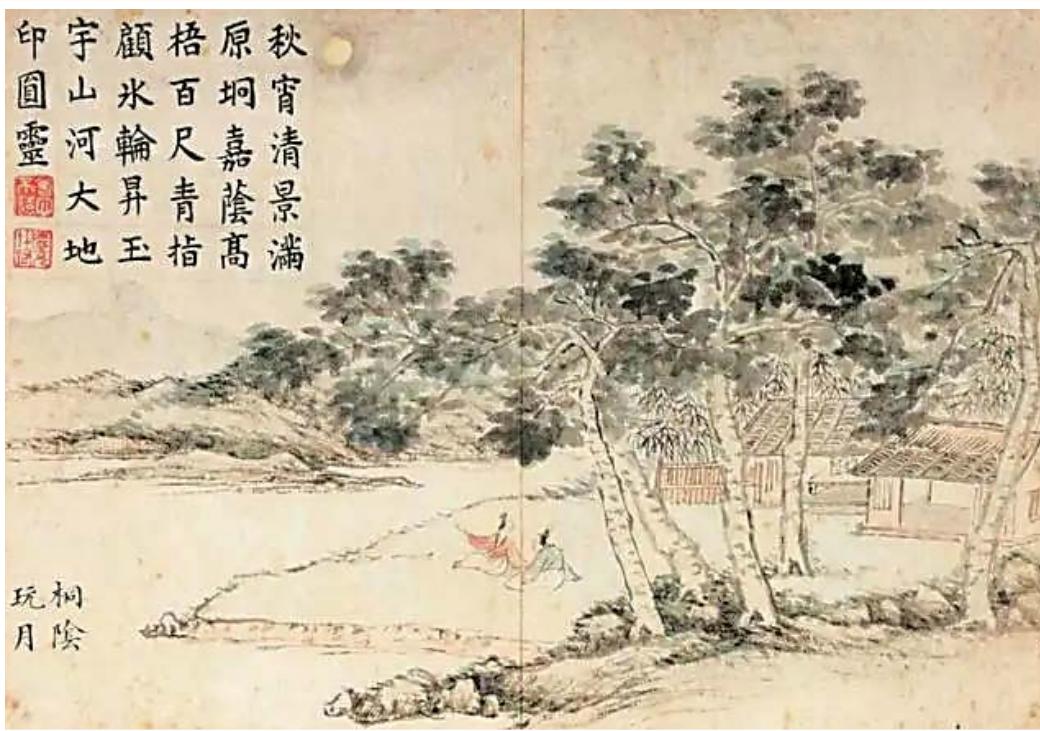 秋宵清景滿
原坰嘉蔭高
梧百尺青指
顧氷輪昇玉
宇山河大地
印圓靈
桐陰
玩月